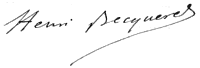 Henri Becquerel